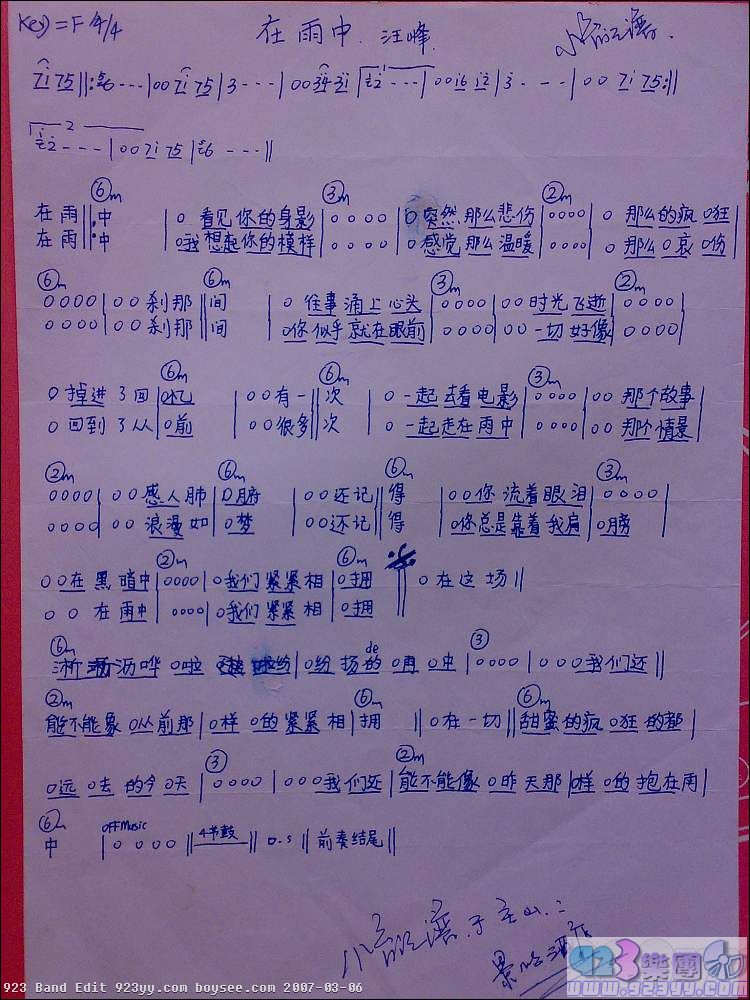 Key=F 4/4 在雨中 汪峰
7i 75 ||: 6 - - - | 00 7i 75 | 3 - - - | 00 34 31 | 2 - - - | 00 i6 i2 | 3 - - - | 00 7i 75 :||
2 - - - | 00 7i 75 | 6 - - - ||
⑥m ③m ②m
在雨 || 中 | 0 看见你的身影 | 0000 | 0突然那么悲伤 | 0000 | 0 那么的疯0狂
在雨 || 中 | 0我想起你的模样 | 0000 | 0感觉那么温暖 | 0000 | 0 那么0哀0伤
⑥m ⑥m ③m ②m
0000 | 00刹那 || 间 | 0 往事涌上心头 | 0000 | 00时光飞逝 | 0000 |
0000 | 00刹那 || 间 | 0你似乎就在眼前 | 0000 | 00一切好像 | 0000 |
⑥m ⑥m ③m
0掉进了回 | 0忆 | 00有一 || 次 | 0一起去看电影 | 0000 | 00那个故事
0回到了从 | 0前 | 00很多 || 次 | 0一起走在雨中 | 0000 | 00那个情景
②m ⑥m ⑥m ③m
0000 | 00感人肺 | 0腑 | 00还记 || 得 | 00你流着眼泪 | 0000 |
0000 | 00浪漫如 | 0梦 | 00还记 || 得 | 0你总是靠着我肩 | 0膀
②m ⑥m
00在黑暗中 | 0000 | 0我们紧紧相 | 0拥 || 0在这场 ||
00在雨中 | 0000 | 0我们紧紧相 | 0拥
⑥m de ③
淅沥哗0啦 纷 | 0纷扬的0雨0中 | 0000 | 000我们还 ||
②m ⑥m ⑥m
能不能象0从前那 | 0样0的紧紧相 | 拥 || 0在一切 || 甜蜜的疯0狂的都 |
③ ②m
0远0去的今0天 | 0000 | 000我们还 | 能不能像0昨天那 | 0样0的抱在雨 |
⑥m OFFMusic
中 | 0000 || 4节鼓 || D.S || 前奏结尾 ||
923 Band Edit 923yy.com boysee.com 2007-03-06
923樂團
www.923yy.com